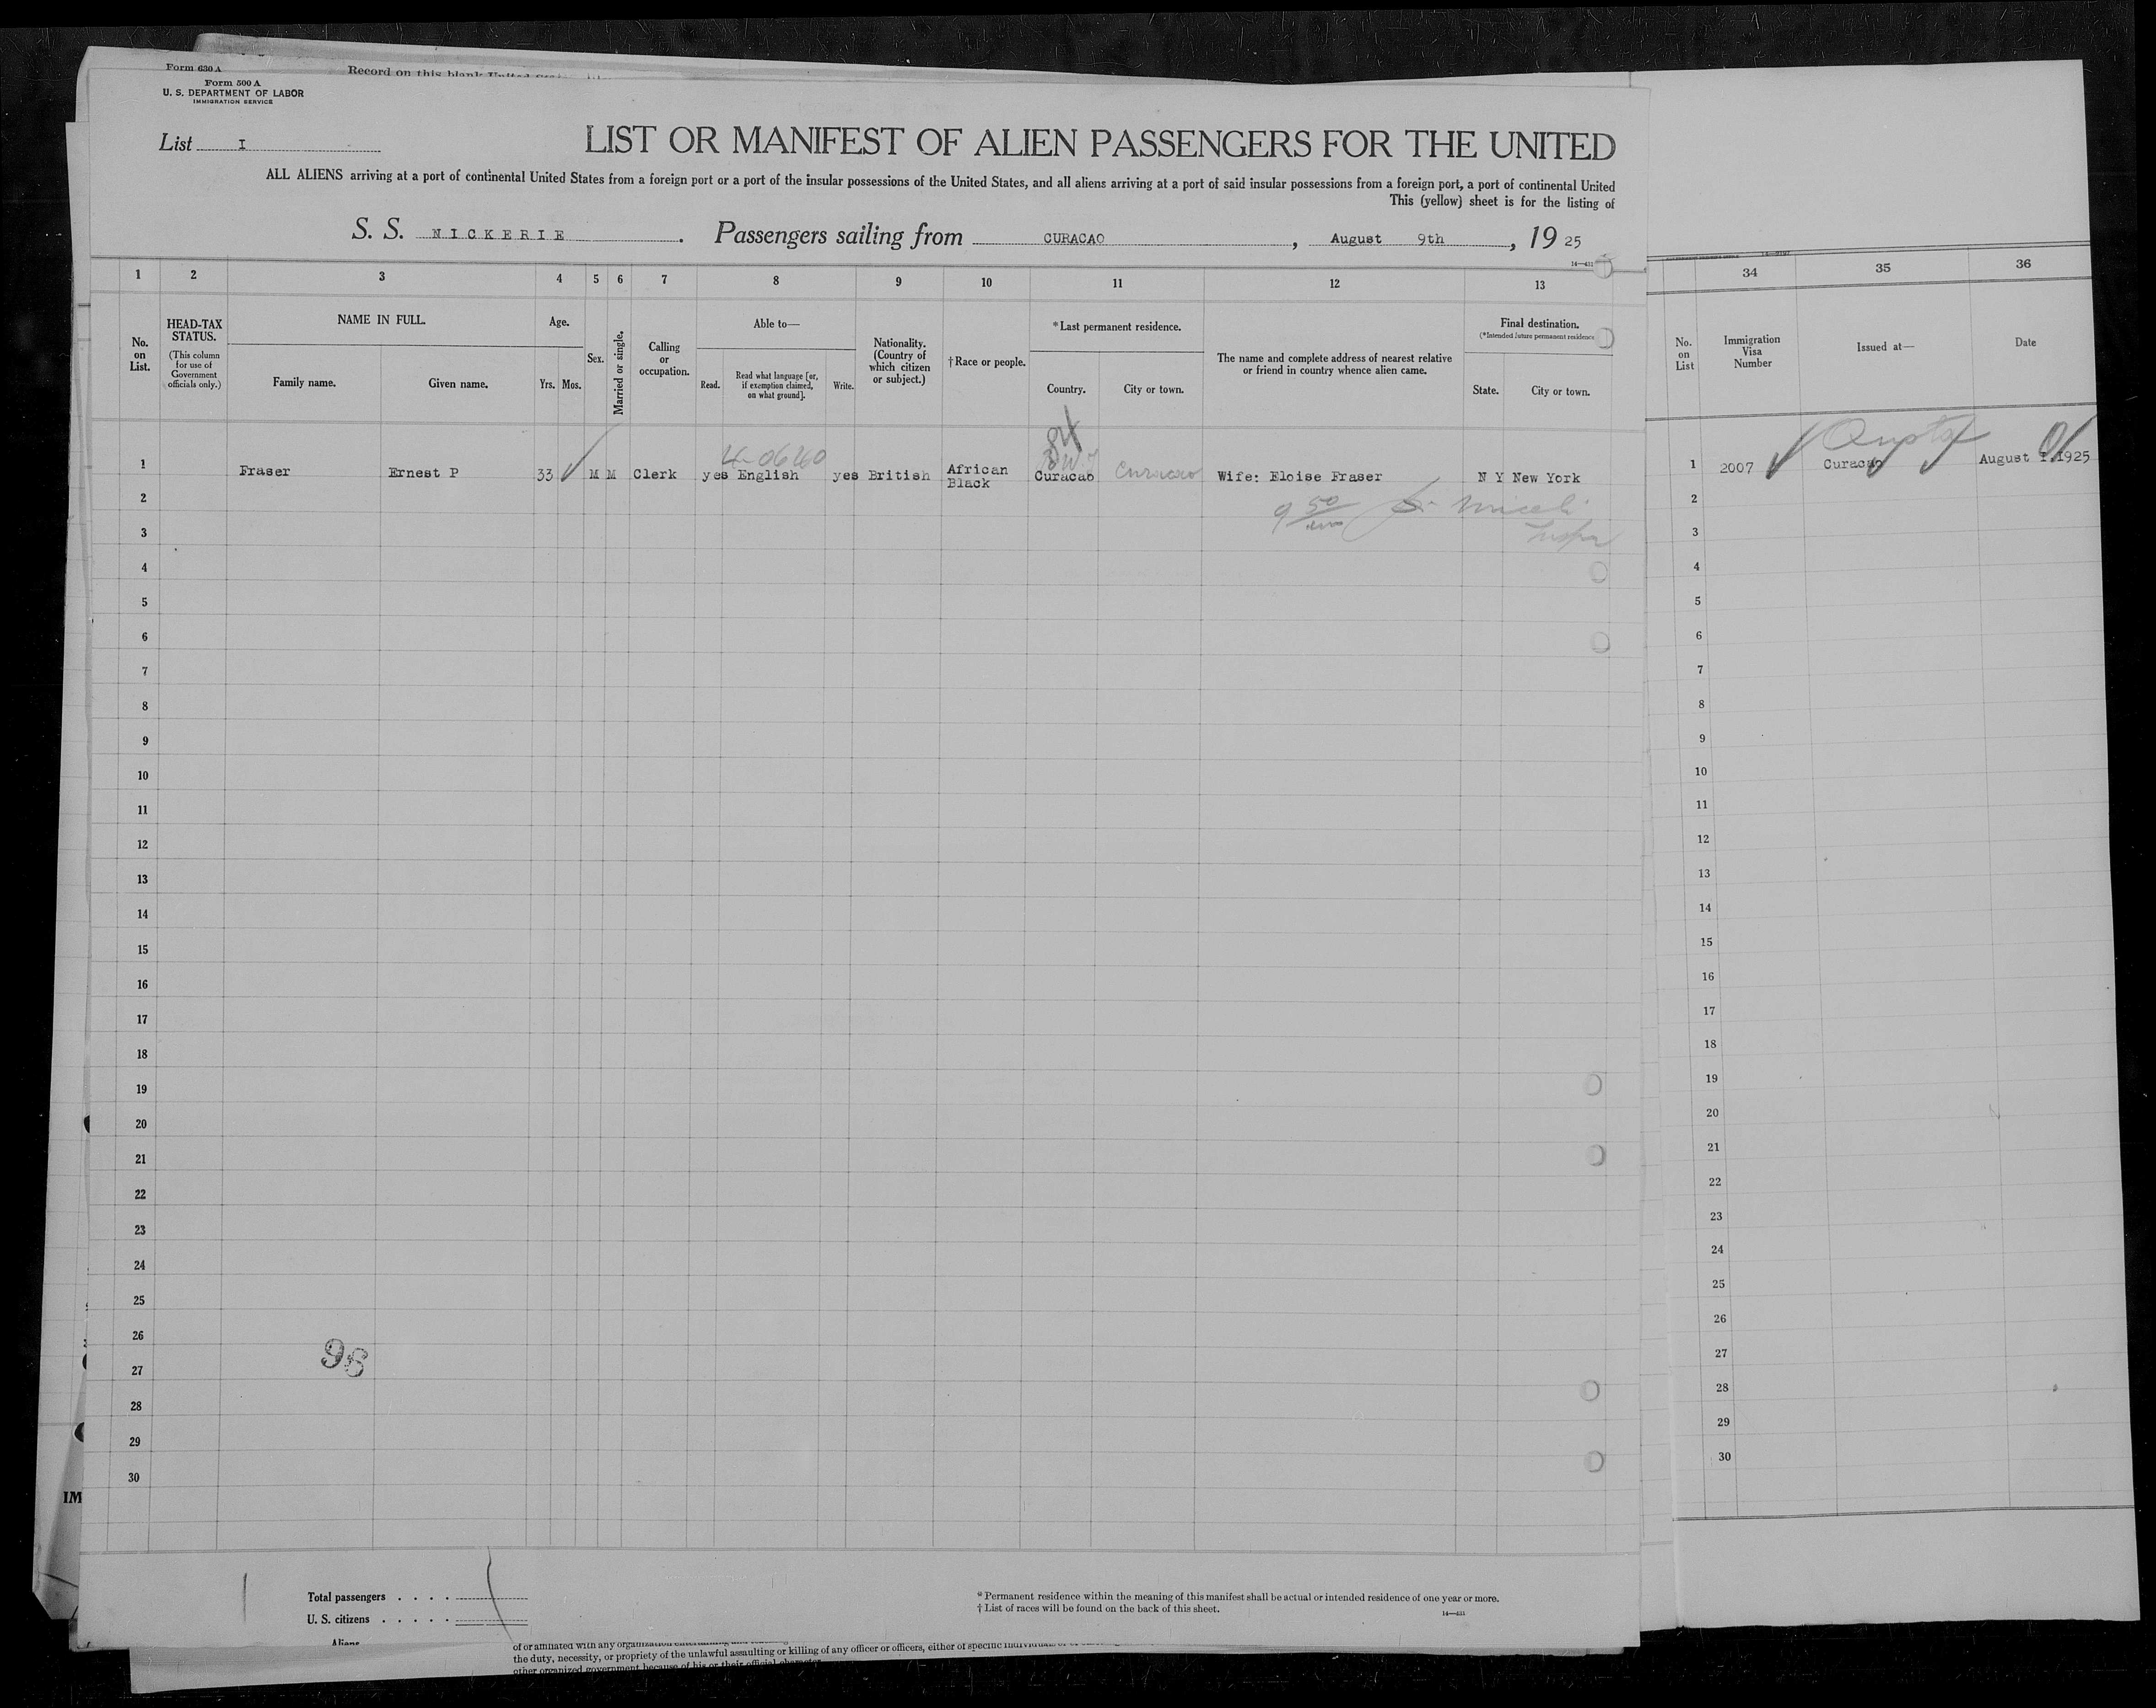 Form 630 A
Record on this blank United
Form 500 A
U. S. DEPARTMENT OF LABOR
IMMIGRATION SERVICE
List I
LIST OR MANIFEST OF ALIEN PASSENGERS FOR THE UNITED
ALL ALIENS arriving at a port of continental United States from a foreign port or a port of the insular possessions of the United States, and all aliens arriving at a port of said insular possessions from a foreign port, a port of continental United
This (yellow) sheet is for the listing of
S. S. NICKERIE. Passengers sailing from CURACAO, August 9th, 1925
1 2 3 4 5 6 7 8 9 10 11 12 13
34 35 36
No. on List.
HEAD-TAX STATUS.
(This column for use of Government officials only.)
NAME IN FULL.
Family name.
Given name.
Age.
Yrs. Mos.
Sex.
Married or single.
Calling or occupation.
Able to—
Read.
Read what language [or, if exemption claimed, on what ground].
Write.
Nationality. (Country of which citizen or subject.)
†Race or people.
*Last permanent residence.
Country.
City or town.
The name and complete address of nearest relative or friend in country whence alien came.
Final destination.
(*Intended future permanent residence
State.
City or town.
No. on List
Immigration Visa Number
Issued at—
Date
84
1 Fraser Ernest P 33 M M Clerk yes English yes British African Black Curacao Curacao Wife: Eloise Fraser N Y New York
1 2007 Curacao August 1925
2 2
9 50
3 3
4 4
5 5
6 6
7 7
8 8
9 9
10 10
11 11
12 12
13 13
14 14
15 15
16 16
17 17
18 18
19 19
20 20
21 21
22 22
23 23
24 24
25 25
26 26
98
27 27
28 28
29 29
30 30
IM
Total passengers
U. S. citizens
Aliens
* Permanent residence within the meaning of this manifest shall be actual or intended residence of one year or more.
† List of races will be found on the back of this sheet.
of or affiliated with any organization
the duty, necessity, or propriety of the unlawful assaulting or killing of any officer or officers, either of specific
other organized government because of his or their official character